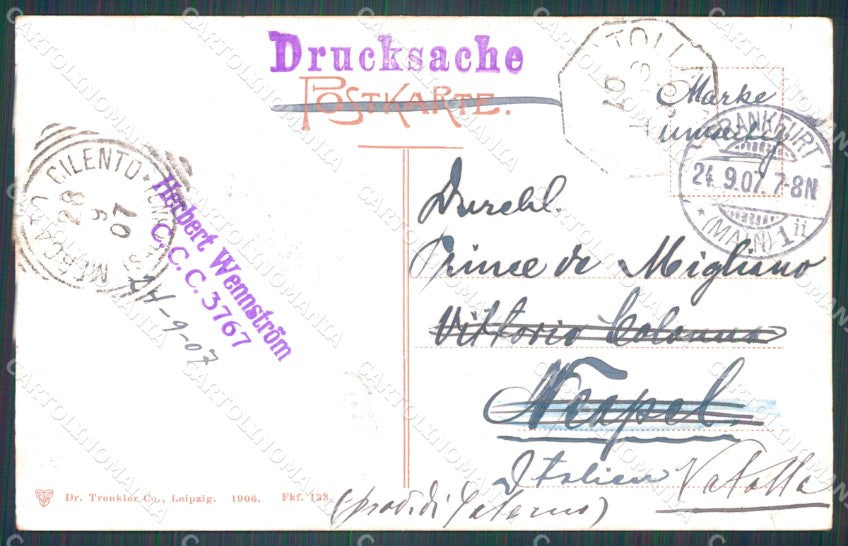 Drucksache
POSTKARTE.
Marke
FRANKFURT
24.9.07. 7-8N
* (MAIN) 1
CILENTO
28
9
07
Herbert Wennström
C.C.C. 3767
24-9-07
Durchl.
Prince de Migliano
Vittorio Colonna
Neapel.
Italien Vatolla
(prov. di Salerno)
Dr. Trenkler Co., Leipzig. 1906. Fkf. 133.
CARTOLINOMANIA